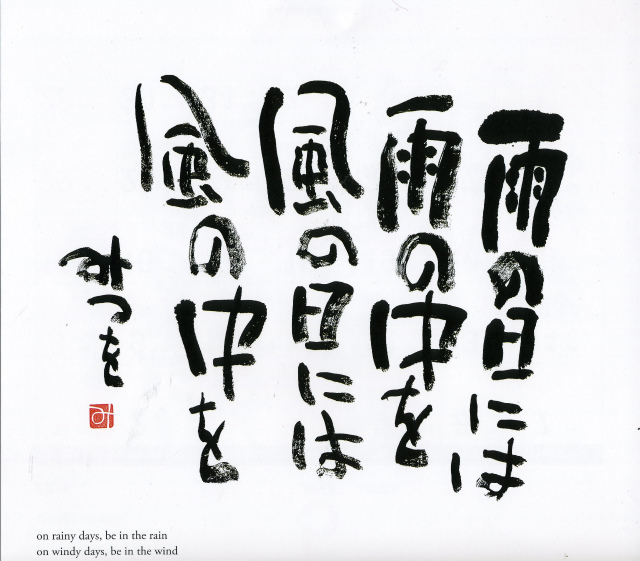 雨の日には
雨の中を
風の日には
風の中を
みつを
み
on rainy days, be in the rain
on windy days, be in the wind